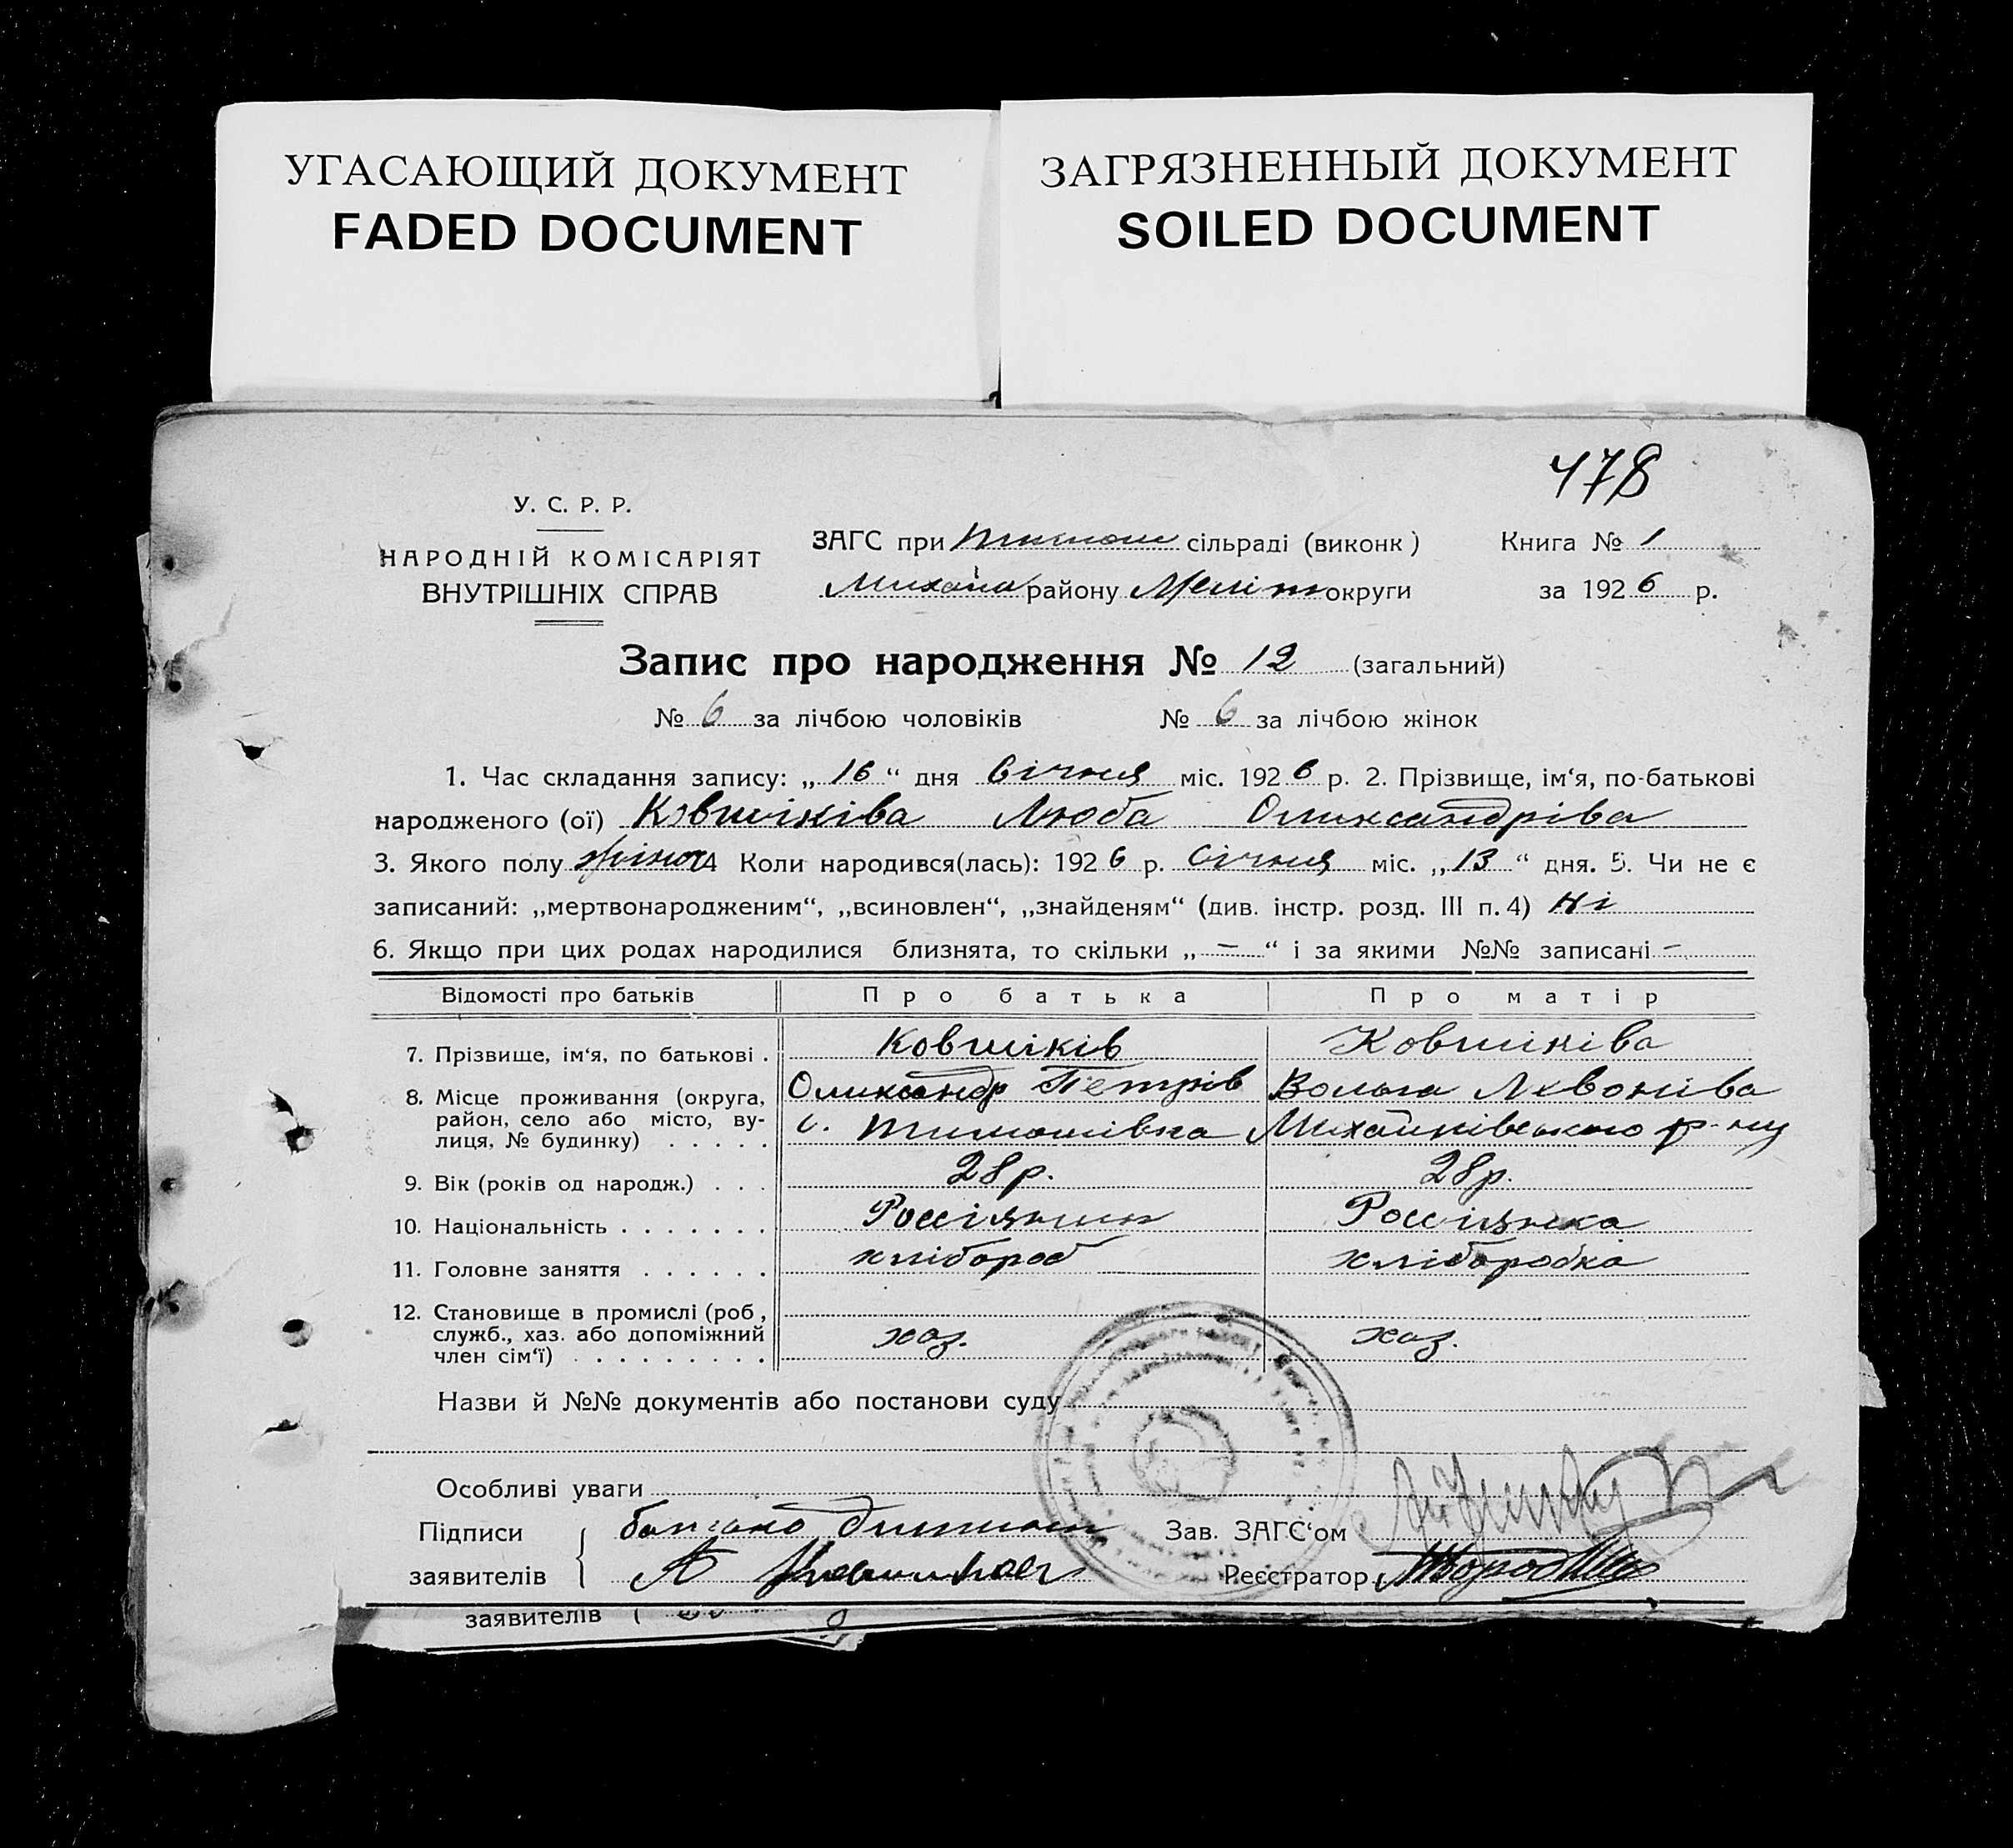 УГАСАЮЩИЙ ДОКУМЕНТ
FADED DOCUMENT
ЗАГРЯЗНЕННЫЙ ДОКУМЕНТ
SOILED DOCUMENT
478
У. С. Р. Р.
НАРОДНІЙ КОМІСАРІЯТ
ВНУТРІШНІХ СПРАВ
ЗАГС при Тимош сільраді (виконк)
Михайл району Меліт округи
Книга № 1
за 1926 р.
Запис про народження № 12 (загальний)
№ 6 за лічбою чоловіків № 6 за лічбою жінок
1. Час складання запису: „16“ дня Січня міс. 1926 р. 2. Прізвище, ім‘я, по-батькові
народженого (ої) Ковшіківа Люба Олександріва
3. Якого полу жіноч 4 Коли народився(лась): 1926 р. Січня міс. „13“ дня. 5. Чи не є
записаний: „мертвонародженим“, „всиновлен“, „знайденям“ (див. інстр. розд. III п. 4) Ні
6. Якщо при цих родах народилися близнята, то скільки „—“ і за якими №№ записані —
Відомості про батьків Про батька Про матір
7. Прізвище, ім‘я, по батькові . Ковшіків Ковшіківа
Олександр Петрів Вольга Левоніва
8. Місце проживання (округа,
район, село або місто, ву-
лиця, № будинку) . . . . . с. Тимошівка Михайлівського р-ну
9. Вік (років од народж.) . . . 28 р. 28 р.
10. Національність . . . . . . . Россіянин Россіянка
11. Головне заняття . . . . . . хлібороб хліборобка
12. Становище в промислі (роб.,
служб., хаз. або допоміжний
член сім‘ї) . . . . . . . . . хаз. хаз.
Назви й №№ документів або постанови суду
Особливі уваги
Підписи
заявителів
Зав. ЗАГС‘ом
Реєстратор
заявителів